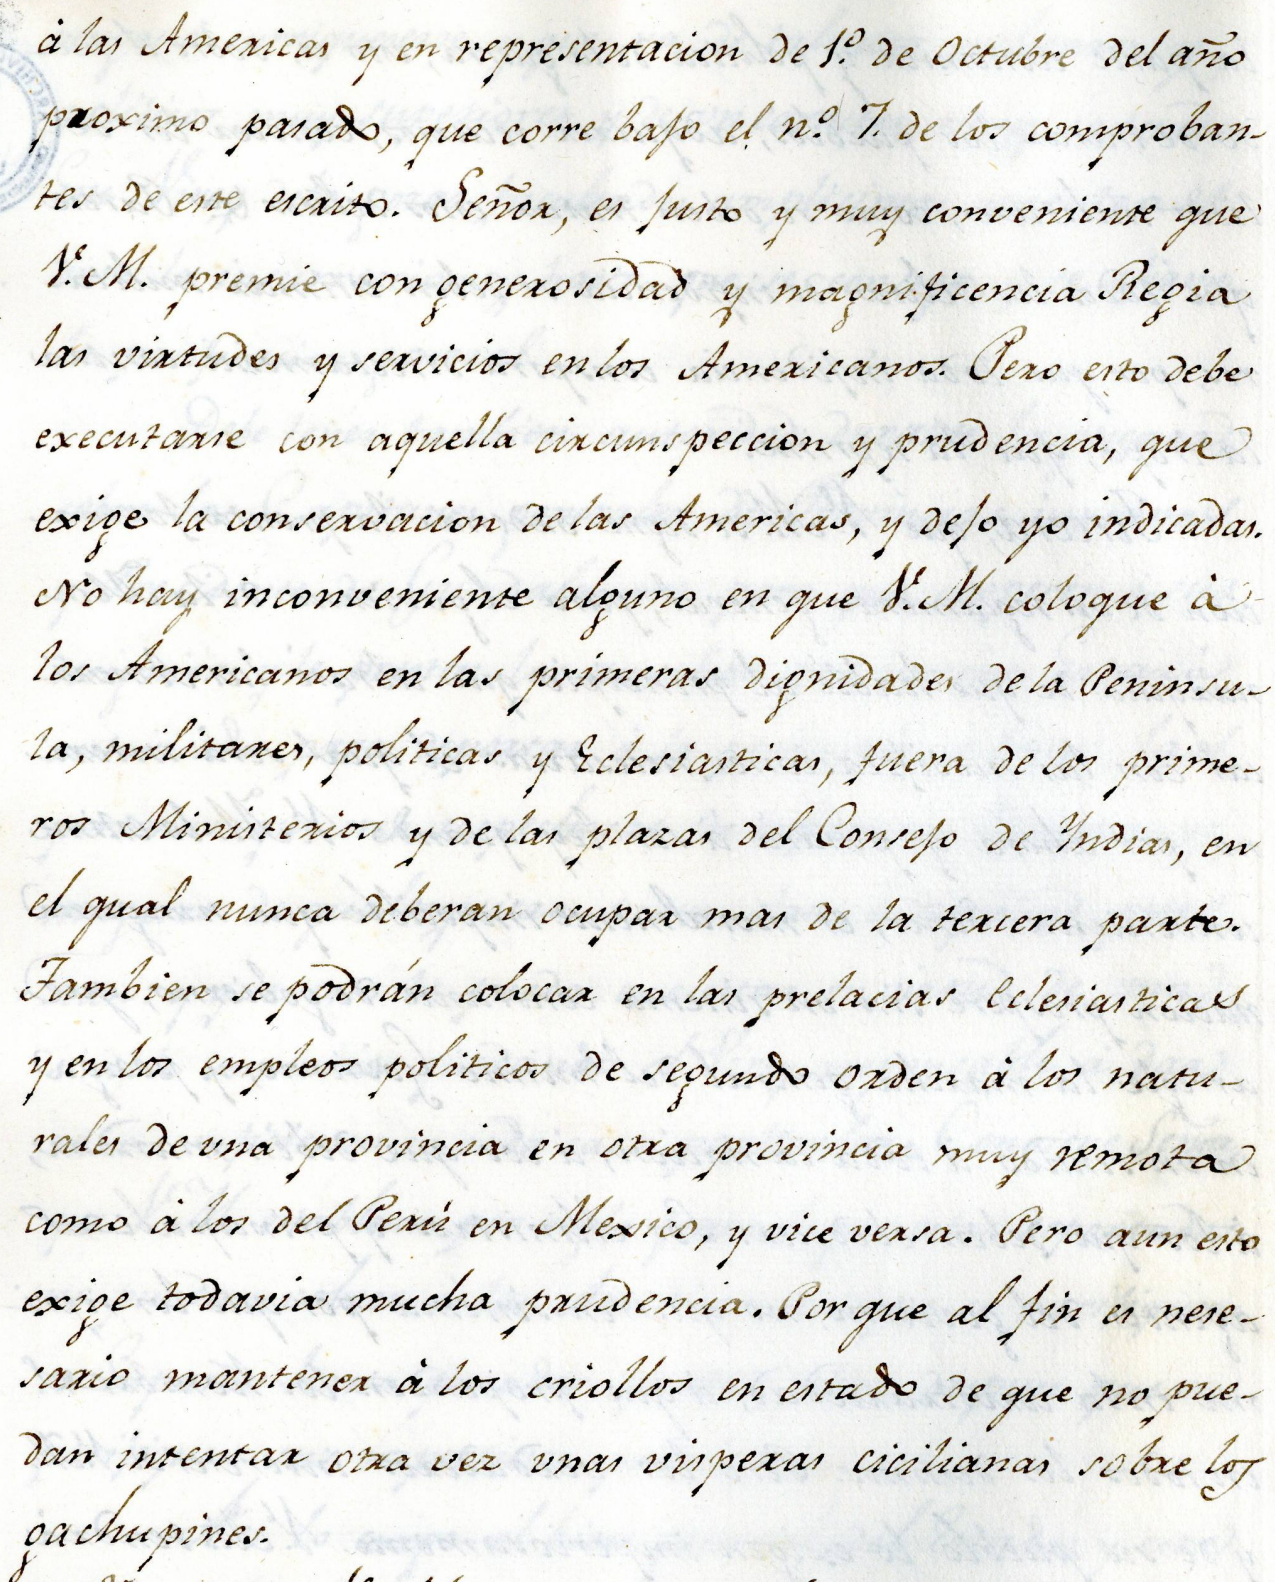 à las Americas y en representacion de 1.º de Octubre del año
proximo pasado, que corre bajo el n.º 7. de los comproban-
tes de este escrito. Señor, es justo y muy conveniente que
V. M. premie con generosidad y magnificencia Regia
las virtudes y servicios en los Americanos. Pero esto debe
executarse con aquella circunspeccion y prudencia, que
exige la conservacion de las Americas, y dejo yo indicadas.
No hay inconveniente alguno en que V. M. coloque à
los Americanos en las primeras dignidades de la Peninsu-
la, militares, politicas y Eclesiasticas, fuera de los prime-
ros Ministerios y de las plazas del Consejo de Yndias, en
el qual nunca deberan ocupar mas de la tercera parte.
Tambien se podrán colocar en las prelacias eclesiasticas
y en los empleos politicos de segundo orden à los natu-
rales de vna provincia en otra provincia muy remota
como à los del Perú en Mexico, y vice versa. Pero aun esto
exige todavia mucha prudencia. Por que al fin es nese-
sario mantener à los criollos en estado de que no pue-
dan intentar otra vez vnas visperas cicilianas sobre los
gachupines.